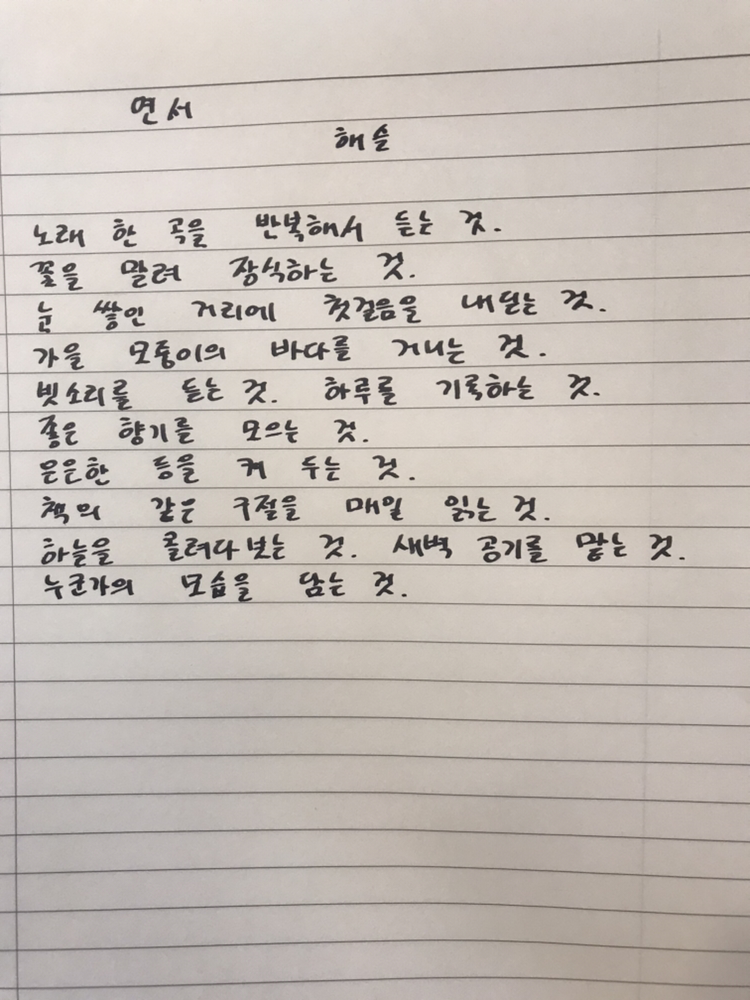 연서
해슬
노래 한 곡을 반복해서 듣는 것.
꽃을 말려 장식하는 것.
눈 쌓인 거리에 첫걸음을 내딛는 것.
가을 모퉁이의 바다를 거니는 것.
빗소리를 듣는 것. 하루를 기록하는 것.
좋은 향기를 모으는 것.
은은한 등을 켜 두는 것.
책의 같은 구절을 매일 읽는 것.
하늘을 올려다보는 것. 새벽 공기를 맡는 것.
누군가의 모습을 담는 것.